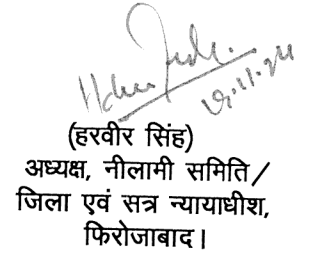 (हरवीर सिंह)
अध्यक्ष, नीलामी समिति/
जिला एवं सत्र न्यायाधीश,
फिरोजाबाद।